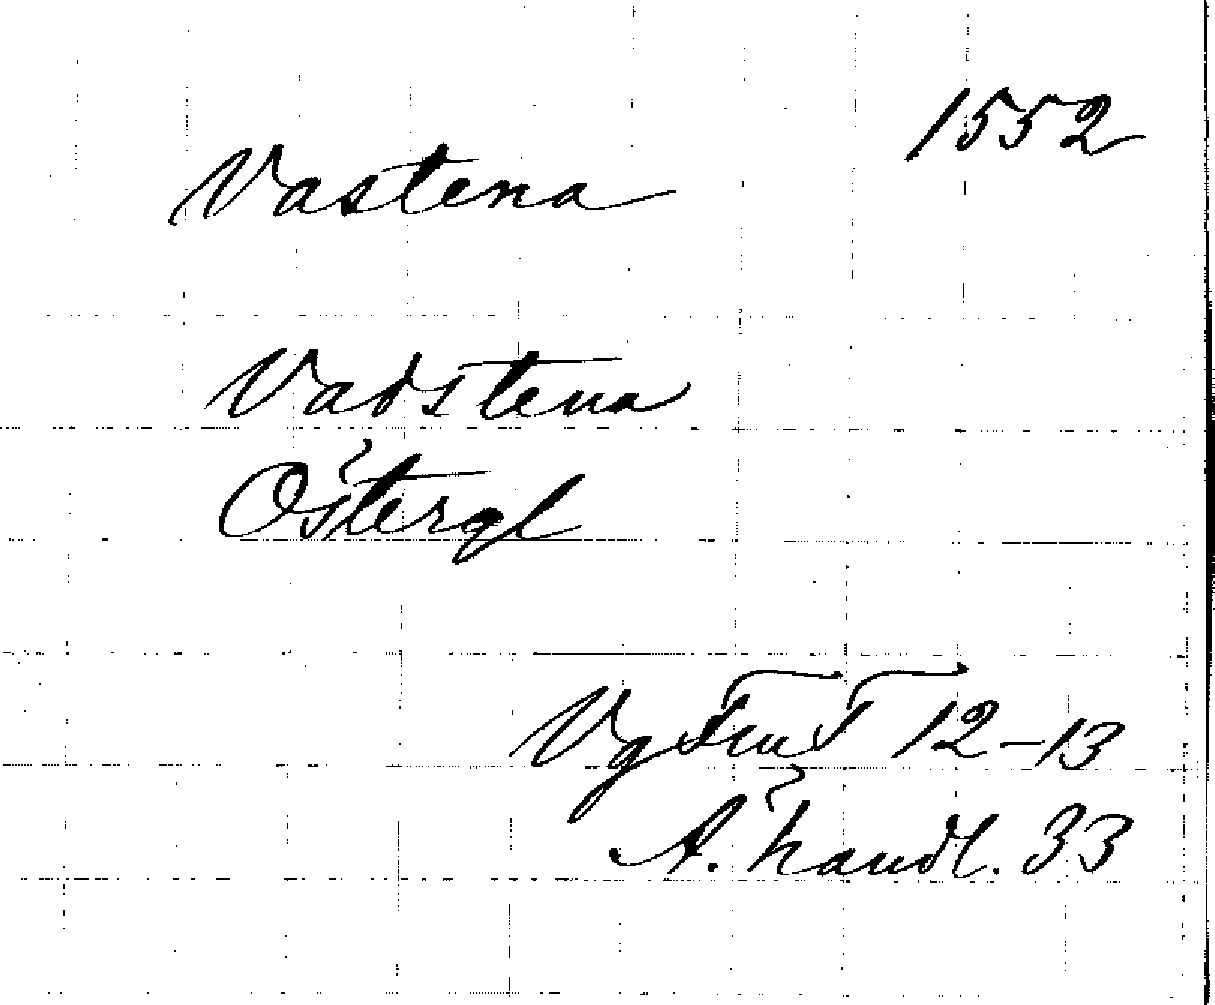 1552
Vastena
Vadstena
Östergl
Vg FmT 12-13
A. handl. 33